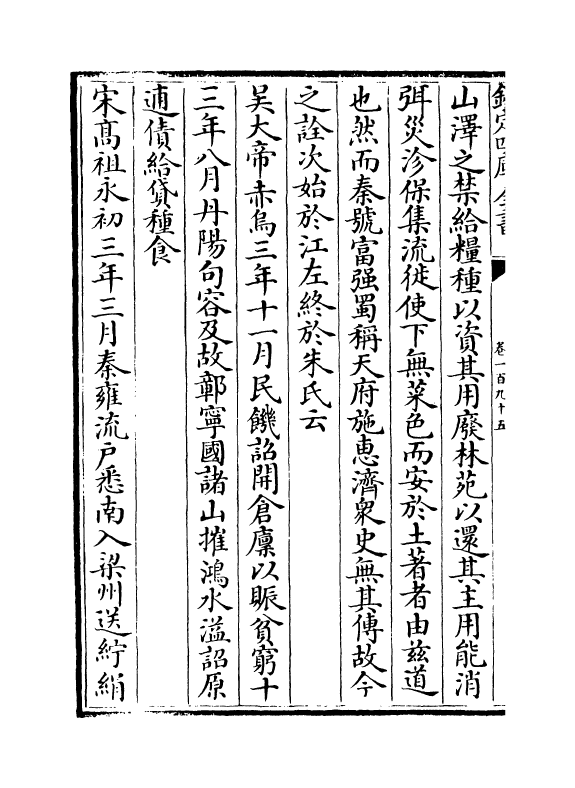 欽定四庫全書
卷一百九十五
山澤之禁給糧種以資其用廢林苑以還其主用能消
弭災沴保集流徙使下無菜色而安於土著者由兹道
也然而秦號富强蜀稱天府施恵濟衆史無其傳故今
之詮次始於江左終於朱氏云
吴大帝赤烏三年十一月民饑詔開倉廩以賑貧窮十
三年八月丹陽句容及故鄣寧國諸山摧鴻水溢詔原
逋債給貸種食
宋髙祖永初三年三月秦雍流户悉南入梁州送紵絹